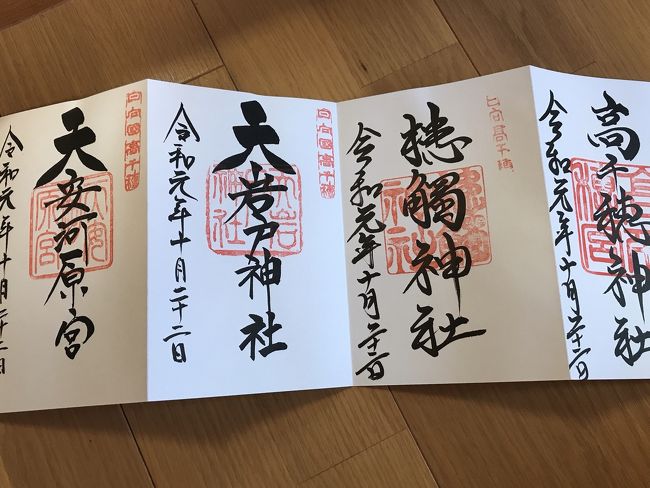 高千穂神社
令和元年十月二十二日
日向高千穂
槵觸神社
令和元年十月二十二日
日向國高千穂
天岩戸神社
令和元年十月二十二日
日向國高千穂
天安河原宮
令和元年十月二十二日